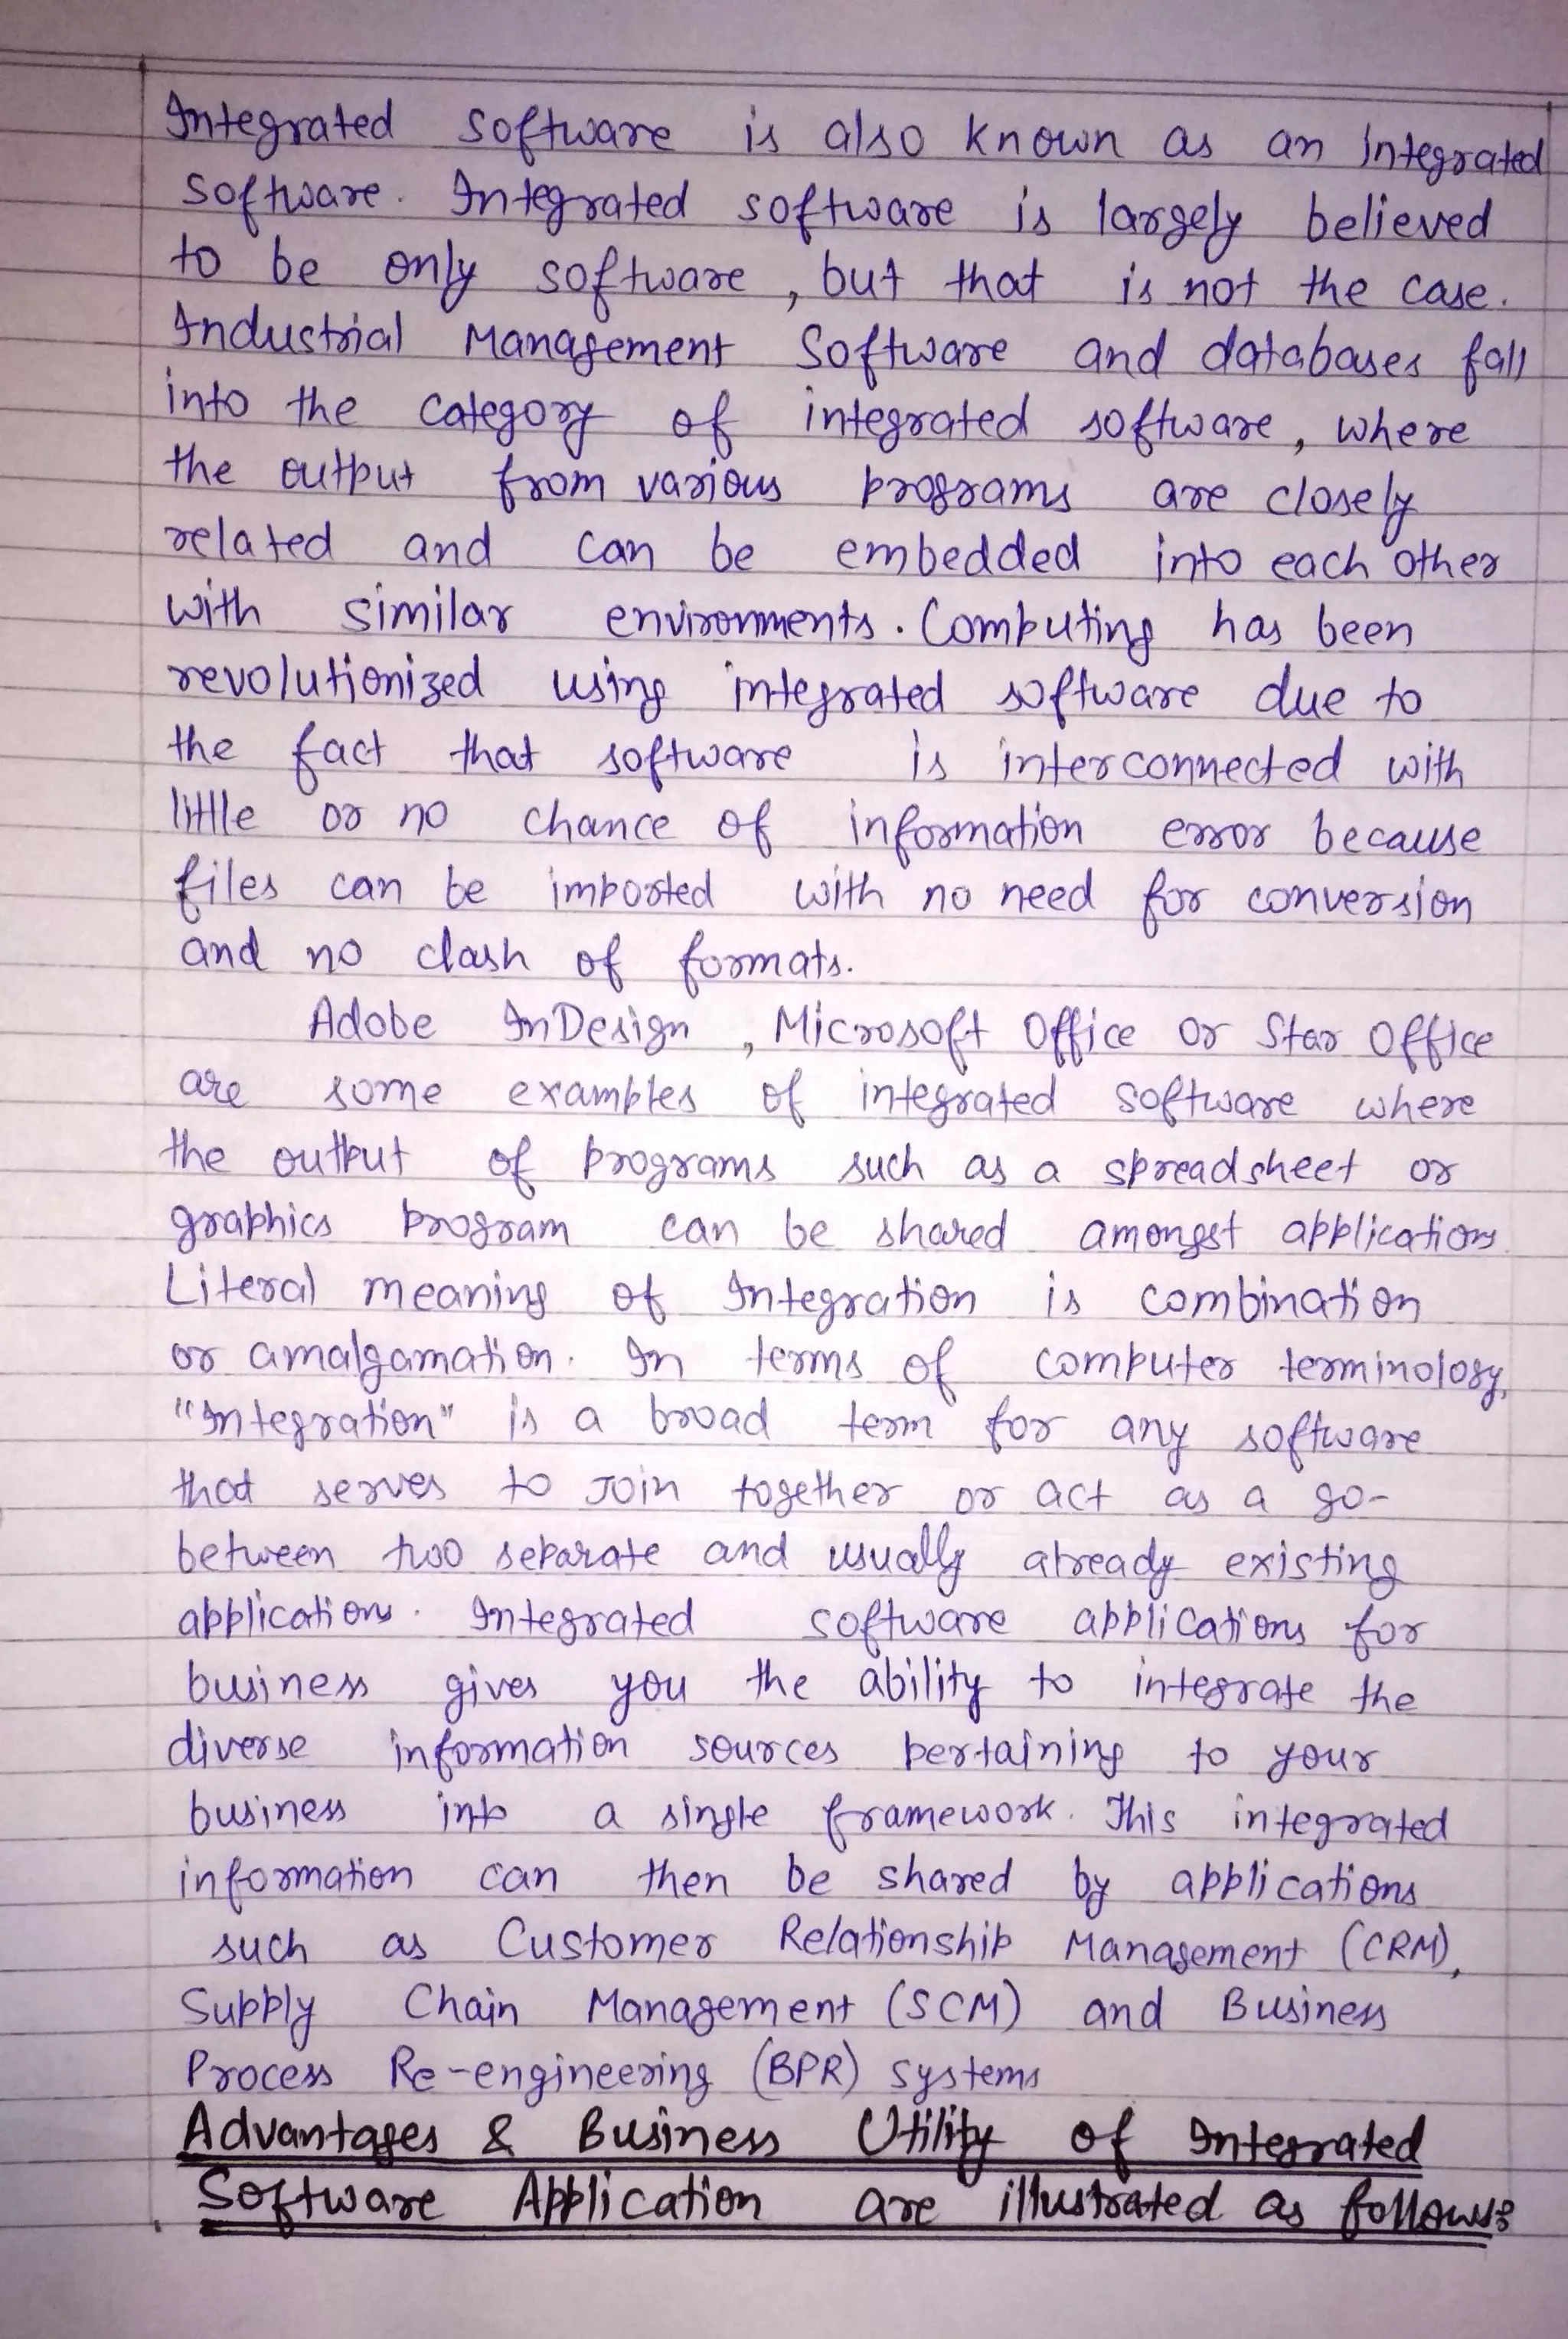 Integrated software is also known as an integrated
software. Integrated software is largely believed
to be only software, but that is not the case.
Industrial Management Software and databases fall
into the category of integrated software, where
the output from various programs are closely
related and can be embedded into each other
with similar environments. Computing has been
revolutionized using integrated software due to
the fact that software is interconnected with
little or no chance of information error because
files can be imported with no need for conversion
and no clash of formats.
Adobe InDesign, Microsoft Office or Star Office
are some examples of integrated software where
the output of programs such as a spreadsheet or
graphics program can be shared amongst applications
Literal meaning of Integration is combination
or amalgamation. In terms of computer terminology,
"Integration" is a broad term for any software
that serves to join together or act as a go-
between two separate and usually already existing
applications. Integrated software applications for
business gives you the ability to integrate the
diverse information sources pertaining to your
business into a single framework. This integrated
information can then be shared by applications
such as Customer Relationship Management (CRM),
Supply Chain Management (SCM) and Business
Process Re-engineering (BPR) systems
Advantages & Business Utility of Integrated
Software Application are illustrated as follows: